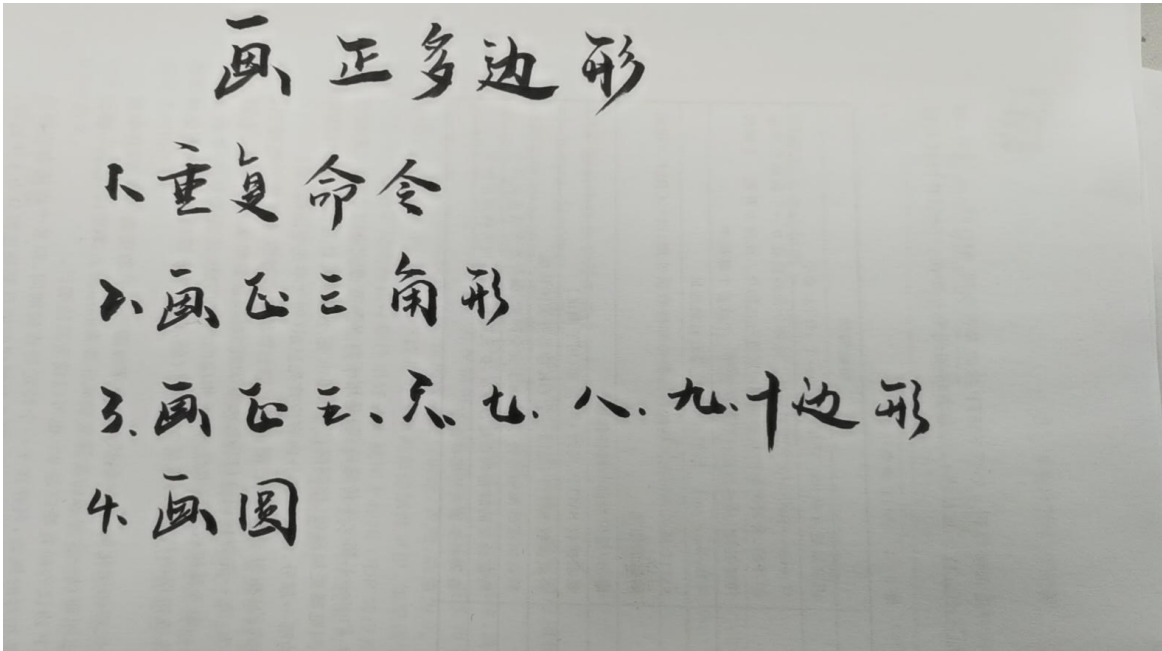 画正多边形
1、重复命令
2、画正三角形
3、画正五、六、七、八、九、十边形
4、画圆